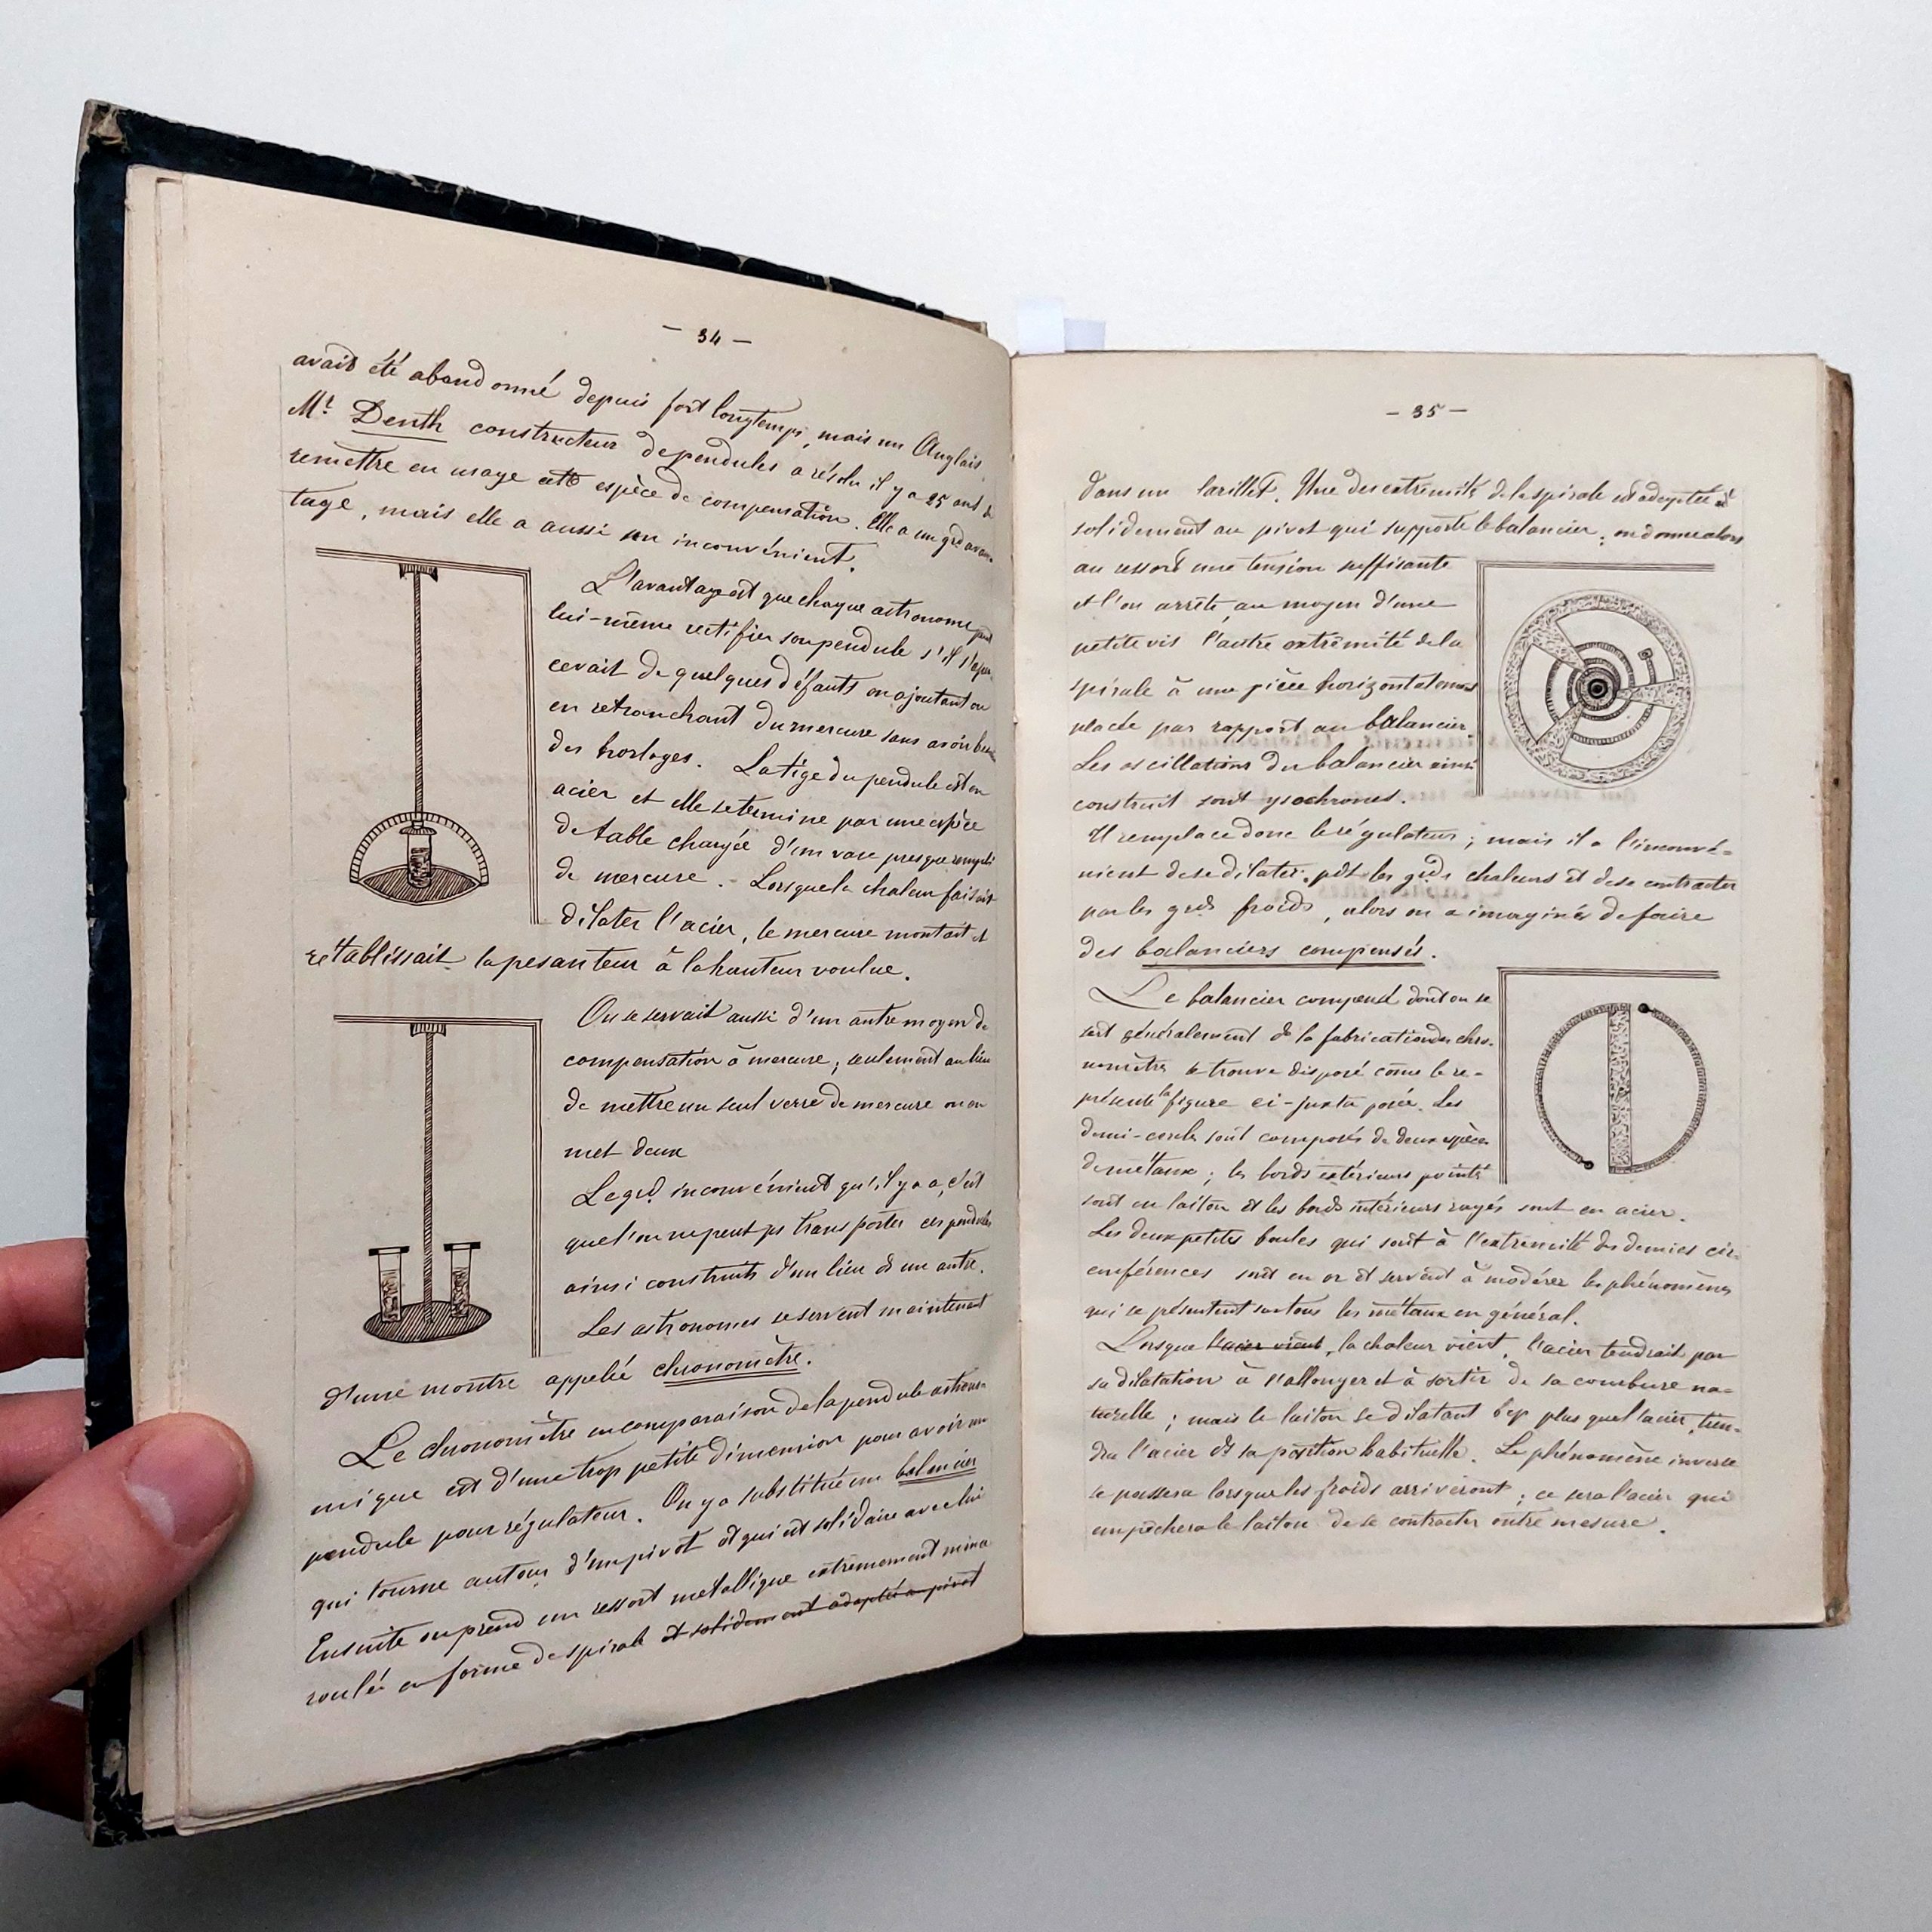 - 34 -
avait été abandonné depuis fort longtemps, mais un Anglais
Mr. Denth constructeur de pendules a résolu il y a 25 ans de
remettre en usage cette espèce de compensation. Elle a un gd avan-
tage, mais elle a aussi un inconvénient.
L'avantage est que chaque astronome peut
lui-même rectifier son pendule s'il s'aper-
cevait de quelques défauts en ajoutant ou
en retranchant du mercure sans avoir
des horloges. La tige du pendule est en
acier et elle se termine par une espèce
de table chargée d'un vase presque rempli
de mercure. - Lorsque la chaleur faisait
dilater l'acier, le mercure montait et
rétablissait la pesanteur à la hauteur voulue.
On se servait aussi d'un autre moyen de
compensation à mercure ; seulement au lieu
de mettre un seul verre de mercure on en
met deux
Le gd. inconvénient qu'il y a, c'est
que l'on ne peut ps transporter ces pendules
ainsi construits d'un lieu à un autre.
Les astronomes se servent maintenant
d'une montre appelée chronomètre.
Le chronomètre en comparaison de la pendule astrono-
mique est d'une trop petite dimension pour avoir un
pendule pour régulateur. On y a substitué un balancier
qui tourne autour d'un pivot et qui est solidaire avec lui
Ensuite on prend un ressort métallique extrêmement mince
roulé en forme de spirale et solidement adapté a pivot
- 35 -
dans un barillet. Une des extrémités de la spirale est adaptée
solidement au pivot qui supporte le balancier ; on donne alors
au ressort une tension suffisante
et l'on arrête au moyen d'une
petite vis l'autre extrémité de la
spirale à une pièce horizontalement
placée par rapport au balancier.
Les oscillations du balancier ainsi
construit sont ysochrones.
Il remplace donc le régulateur ; mais il a l'inconvé-
nient de se dilater pdt les gds chaleurs et de se contracter
par les gds froids, alors on a imaginé de faire
des balanciers compensés.
Le balancier compensé dont on se
sert généralement ds la fabrication des chro-
nomètres se trouve disposé come le re-
présente la figure ci-juxta posée. Les
demi-cercles sont composés de deux espèces
de métaux ; les bords extérieurs pointés
sont en laiton et les bords intérieurs rayés sont en acier.
Les deux petites boules qui sont à l'extrémité des demies cir-
conférences sont en or et servent à modérer les phénomènes
qui se présentent sur tous les métaux en général.
Lorsque l'acier vient, la chaleur vient, l'acier tendrait par
sa dilatation à s'allonger et à sortir de sa courbure na-
turelle ; mais le laiton se dilatant bcp plus que l'acier, tien-
dra l'acier ds sa position habituelle. Le phénomène inverse
se passera lorsque les froids arriveront ; ce sera l'acier qui
empêchera le laiton de se contracter outre mesure.